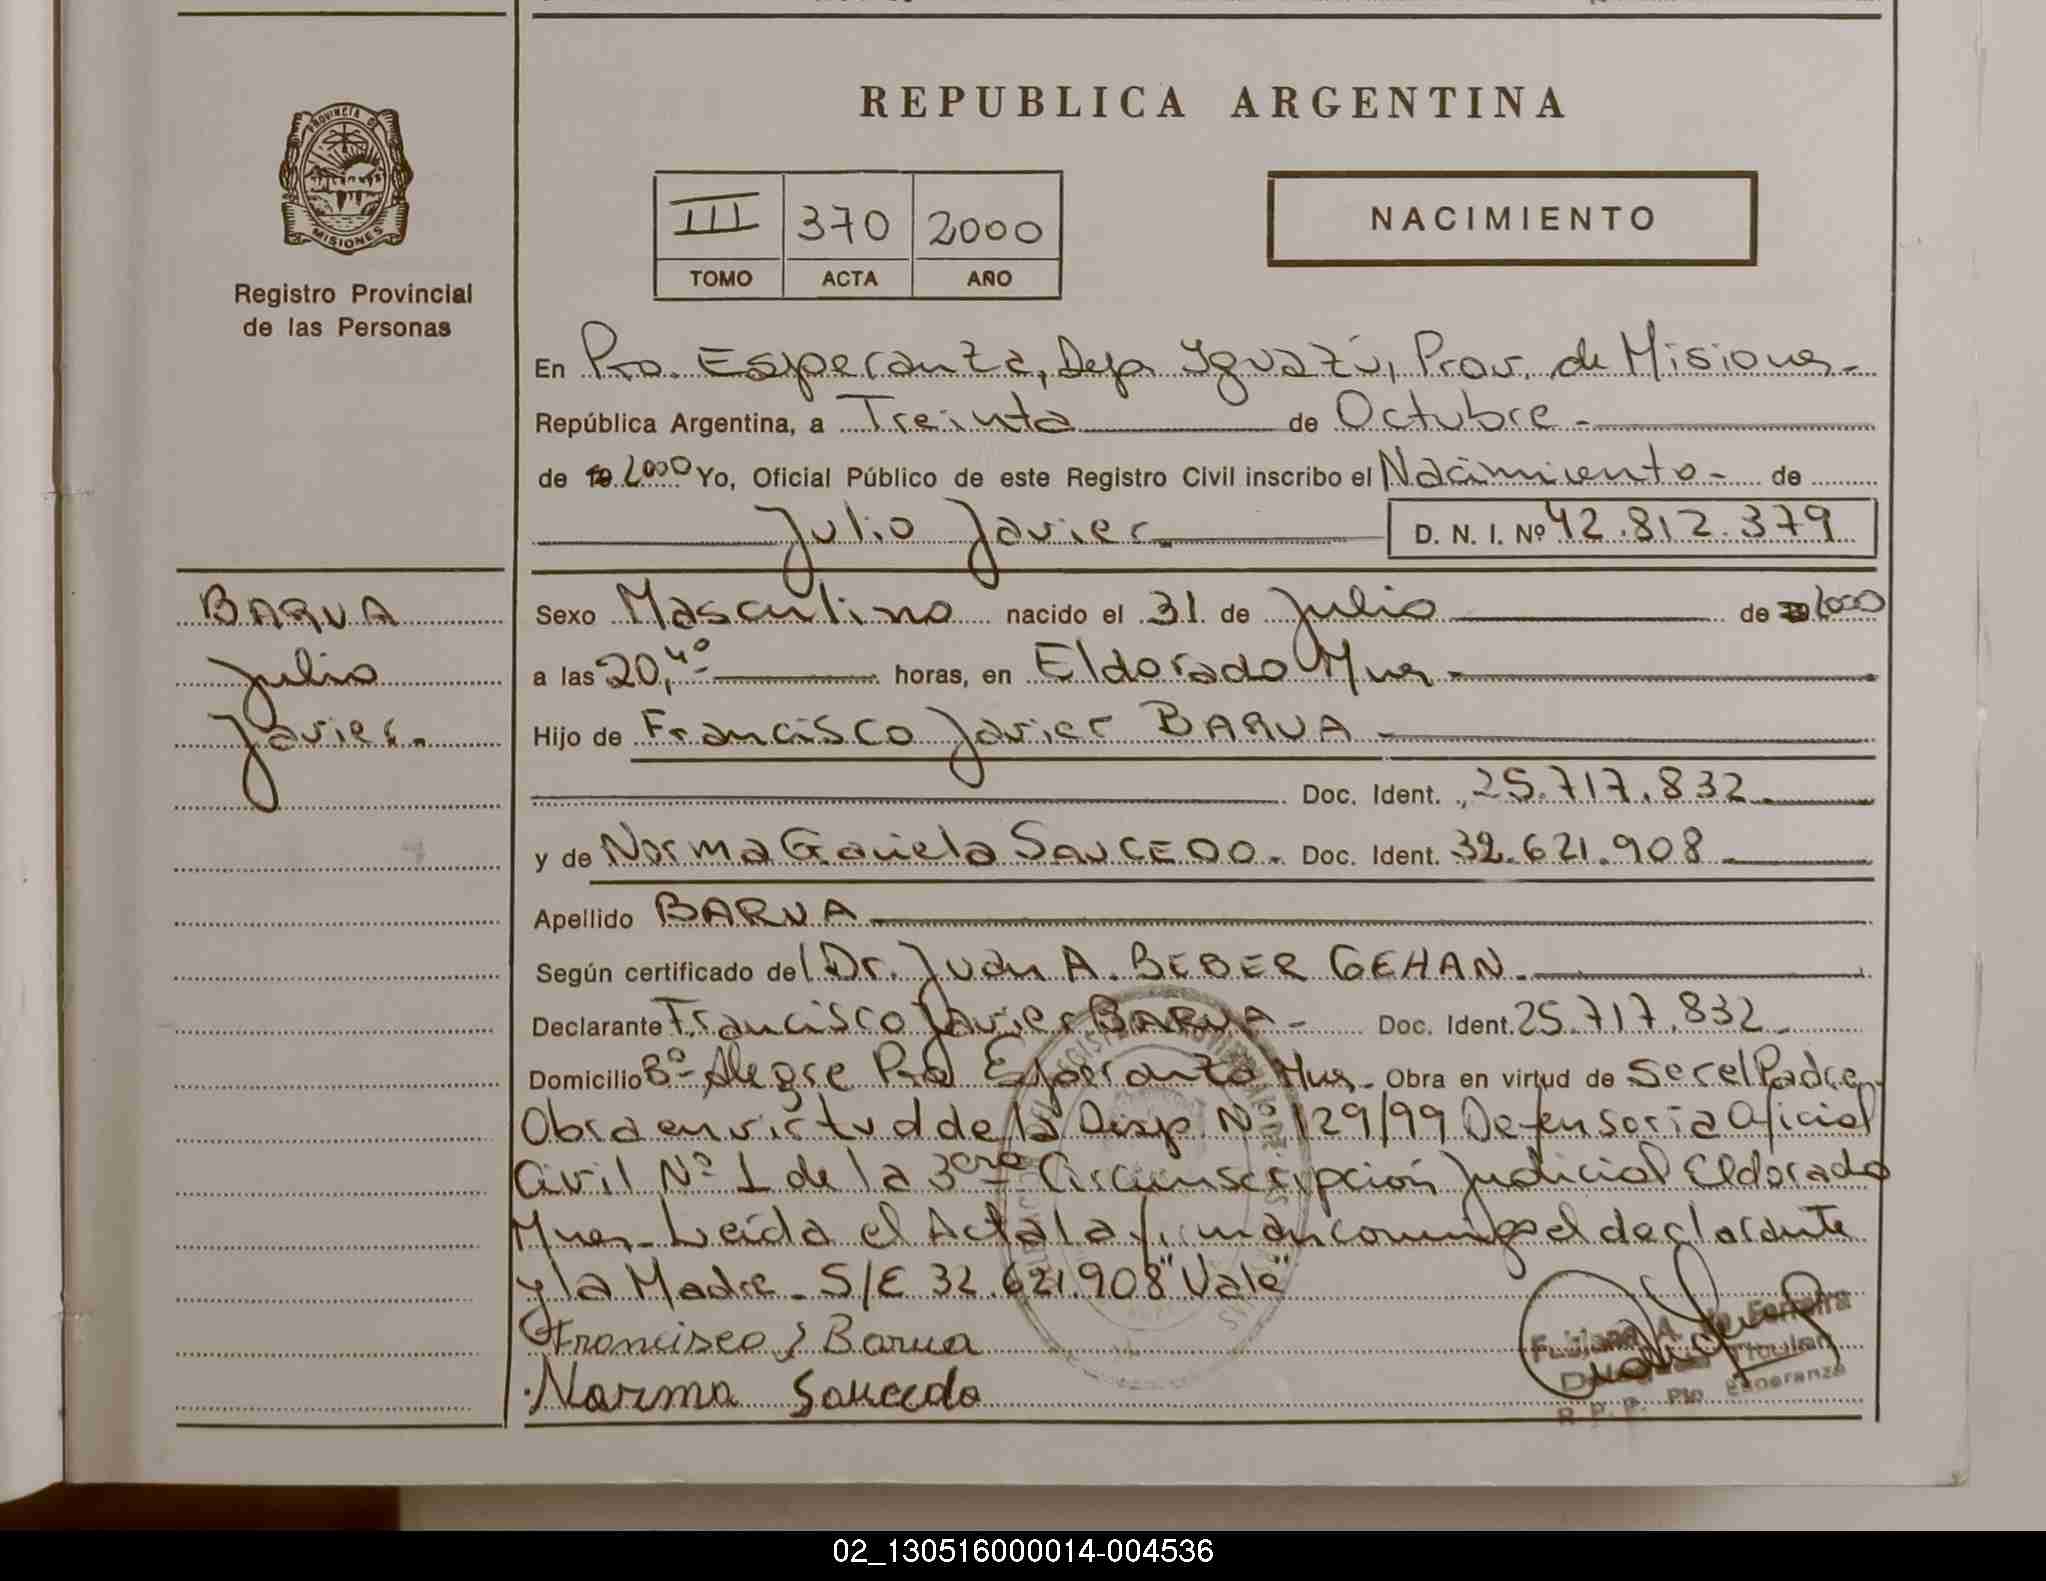 REPUBLICA ARGENTINA
PROVINCIA DE
MISIONES
Registro Provincial
de las Personas
III 370 2000
TOMO ACTA AÑO
NACIMIENTO
En Pto. Esperanza, Dep. Iguazú, Prov. de Misiones
República Argentina, a Treinta de Octubre
de 2000 Yo, Oficial Público de este Registro Civil inscribo el Nacimiento de
Julio Javier D. N. I. Nº 42.812.379
BARUA
Julio
Javier.
Sexo Masculino nacido el 31 de Julio de 2000
a las 20,40 horas, en Eldorado Mnes
Hijo de Francisco Javier BARUA
Doc. Ident. 25.717.832
y de Norma Gaviela SAUCEDO. Doc. Ident. 32.621.908
Apellido BARUA
Según certificado del Dr. Juan A. BEBER GEHAN.
Declarante Francisco Javier BARUA Doc. Ident. 25.717.832
Domicilio Bº Alegre Pto Esperanza Mnes. Obra en virtud de Ser el Padre
Obra en virtud de la Disp. Nº 129/99 Defensoria Oficial
Civil Nº 1 de la 3era Circunscripción Judicial Eldorado
Mnes. Leída el Acta la firman conmigo el declarante
y la Madre. S/E 32.621.908 "Vale"
Francisco J Barua
Norma Saucedo
A. de Ferreira
Titular
R.P.P. Pto. Esperanza
02_130516000014-004536